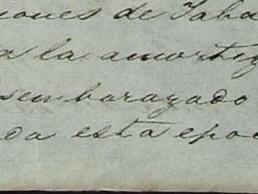 iones de Taba
a la amortiz
sembarazado
da esta epoc